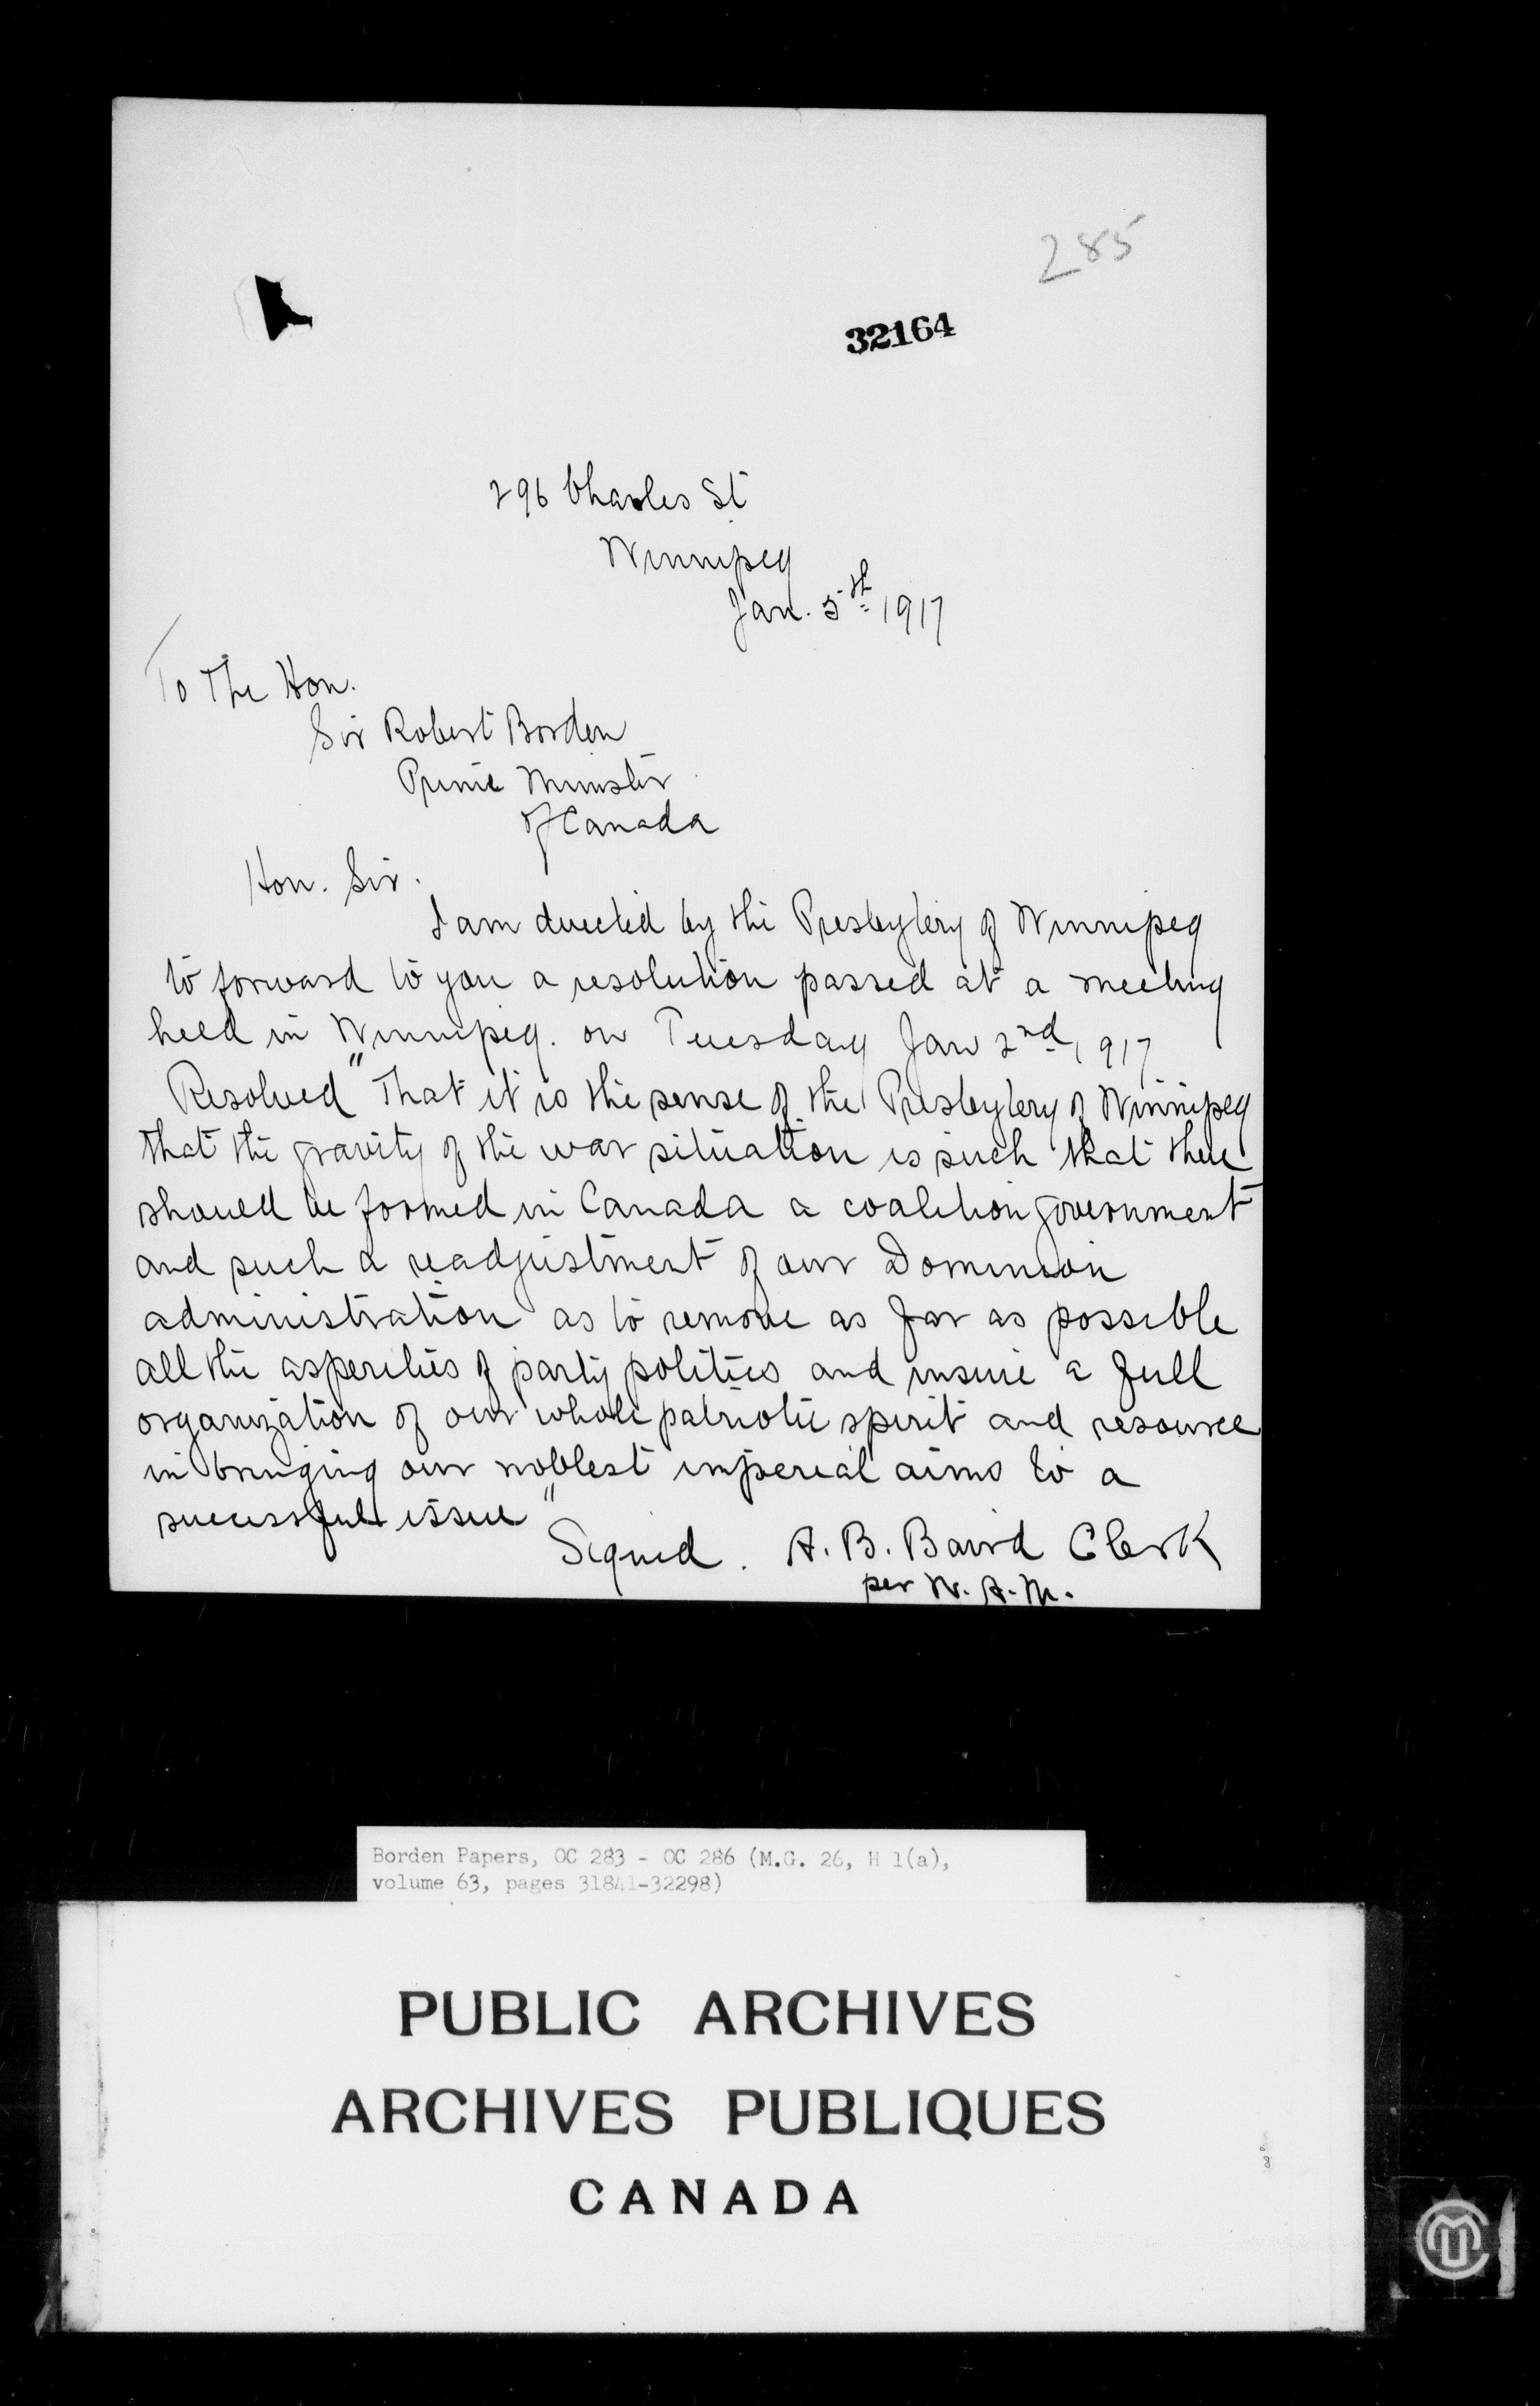 285
32164
296 Charles St
Winnipeg
Jan. 5th 1917
To The Hon.
Sir Robert Borden
Prime Minister
of Canada
Hon. Sir.
I am directed by the Presbytery of Winnipeg
to forward to you a resolution passed at a meeting
held in Winnipeg. on Tuesday Jan 2nd, 1917
Resolved "That it is the sense of the Presbytery of Winnipeg
that the gravity of the war situation is such that there
should be formed in Canada a coalition government
and such a readjustment of our Dominion
administration as to remove as far as possible
all the asperities of party politics and insure a full
organization of our whole patriotic spirit and resource
in bringing our noblest imperial aims to a
successful issue"
Signed. A. B. Baird Clerk
per W. A. M.
Borden Papers, OC 283 - OC 286 (M.G. 26, H 1(a),
volume 63, pages 31841-32298)
PUBLIC ARCHIVES
ARCHIVES PUBLIQUES
CANADA